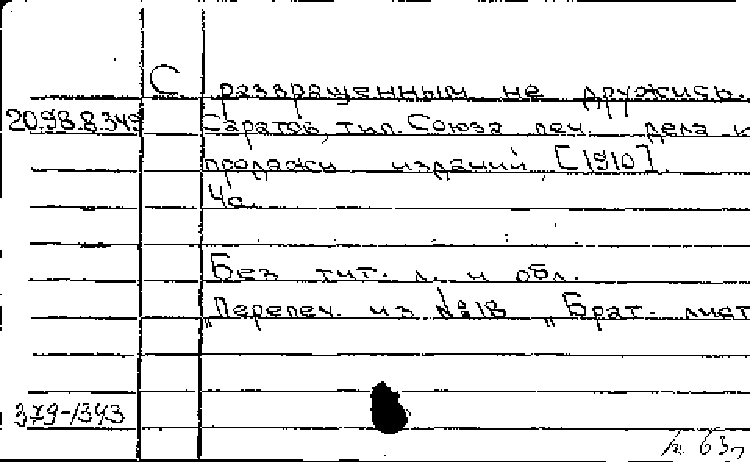 С развращенным не дружись.
20.98.8.349 Саратов, тип. Союза печ. дела и
продажи изданий, [1910].
4с.
Без тит. л. и обл.
„Перепеч. из №18 „Брат. лист
379-1343
63